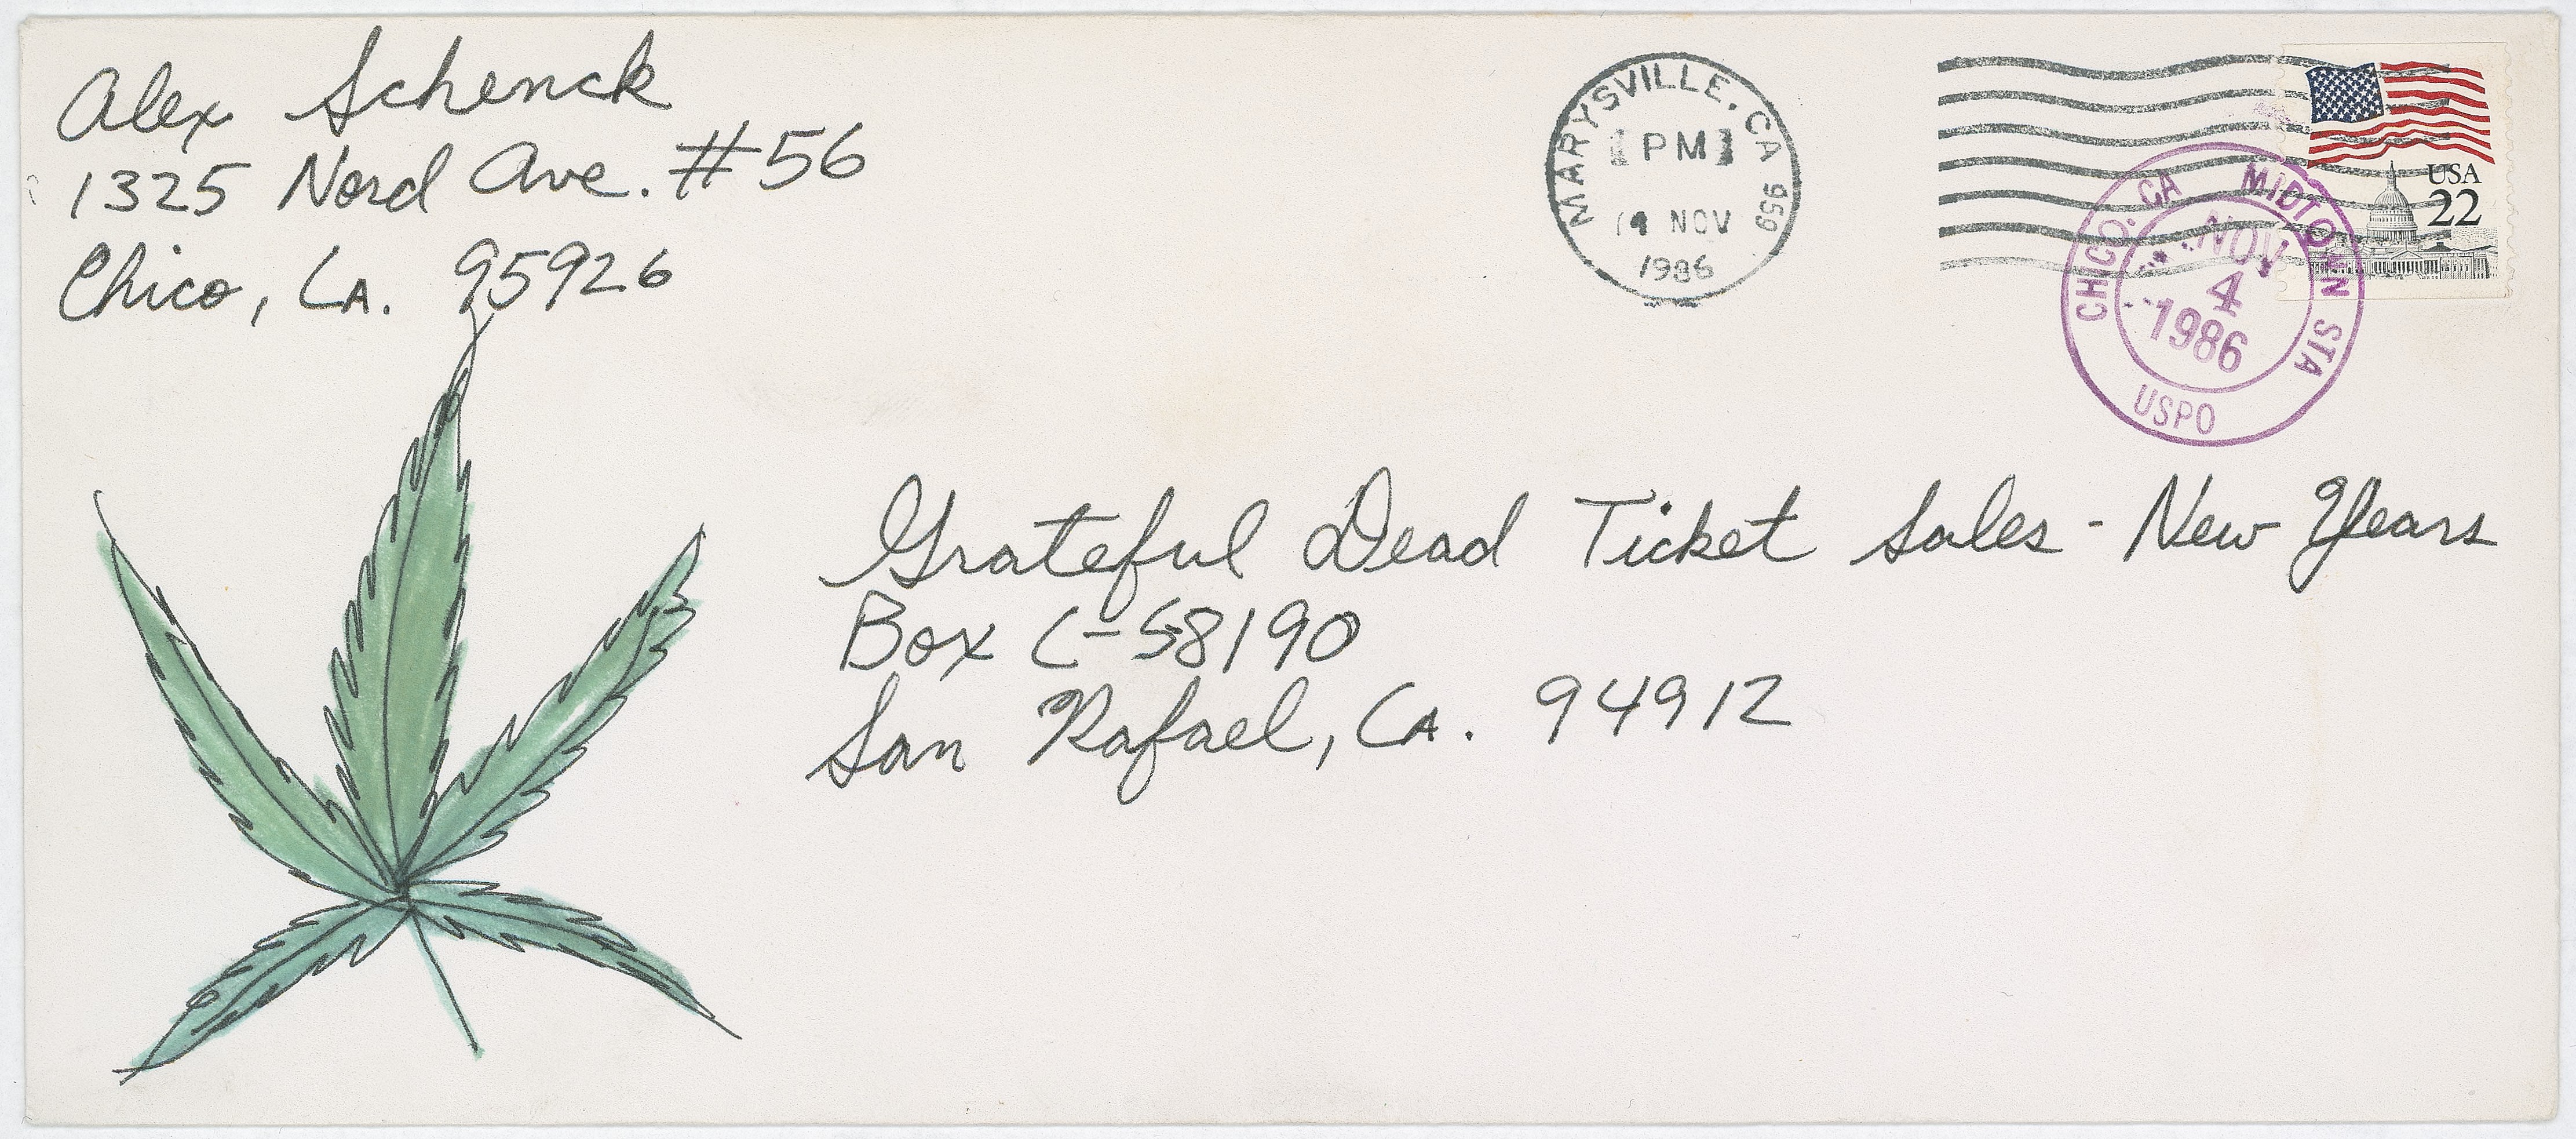 Alex Schenck
1325 Nord Ave. #56
Chico, CA. 95926
MARYSVILLE, CA 959
PM
4 NOV
1986
USA
22
CHICO, CA MIDTOWN STA
NOV
4
1986
USPO
Grateful Dead Ticket Sales - New Years
Box C-S8190
San Rafael, CA. 94912